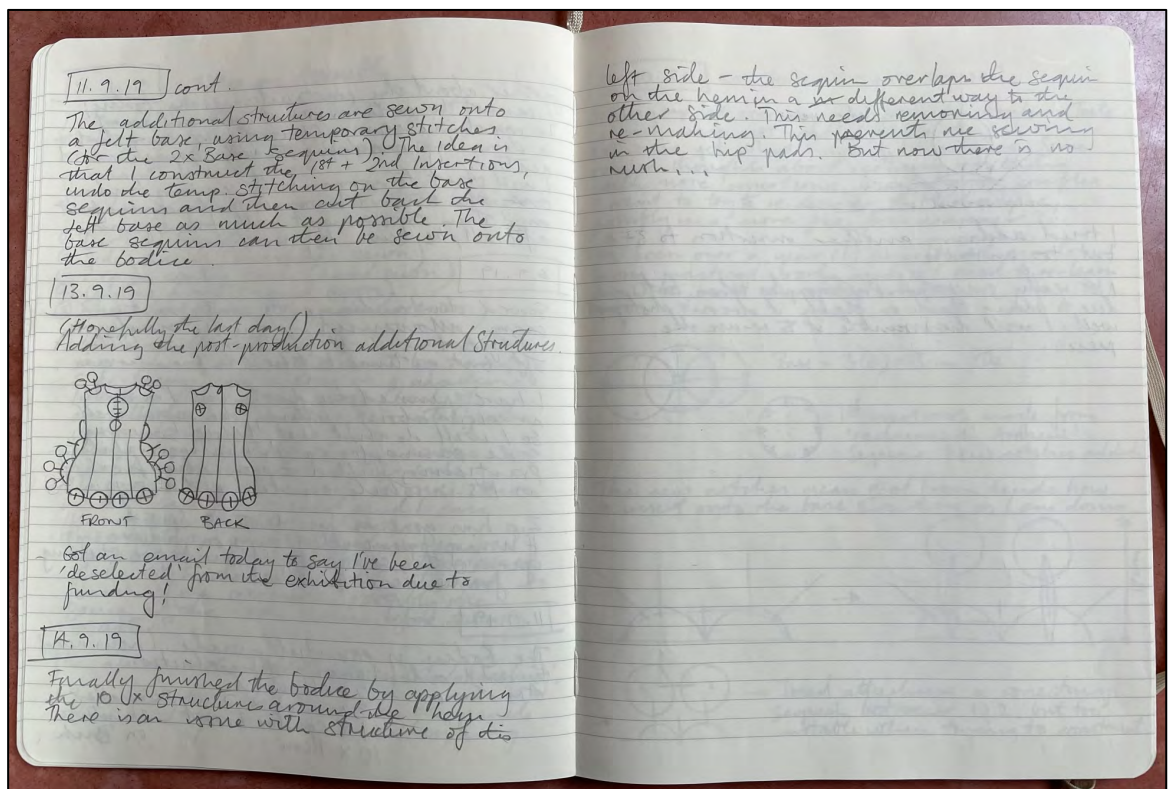 11.9.19 cont.
The additional structures are sewn onto
a felt base, using temporary stitches
(for the 2x Base Sequins). The idea is
that I construct the 1st + 2nd Insertions,
undo the temp. stitching on the base
sequins and then cut back the
felt base as much as possible. The
base sequins can then be sewn onto
the bodice.
13.9.19
(Hopefully the last day!)
Adding the post-production additional Structures.
FRONT
BACK
Got an email today to say I've been
'deselected' from the exhibition due to
funding!
14.9.19
Finally finished the bodice by applying
the 10 x Structures around the hem.
There is an issue with structure of
left side - the sequin overlaps the sequin
on the hem in a different way to the
other side. This needs removing and
re-making. This prevents me sewing
in the hip pads. But now there is no
rush...